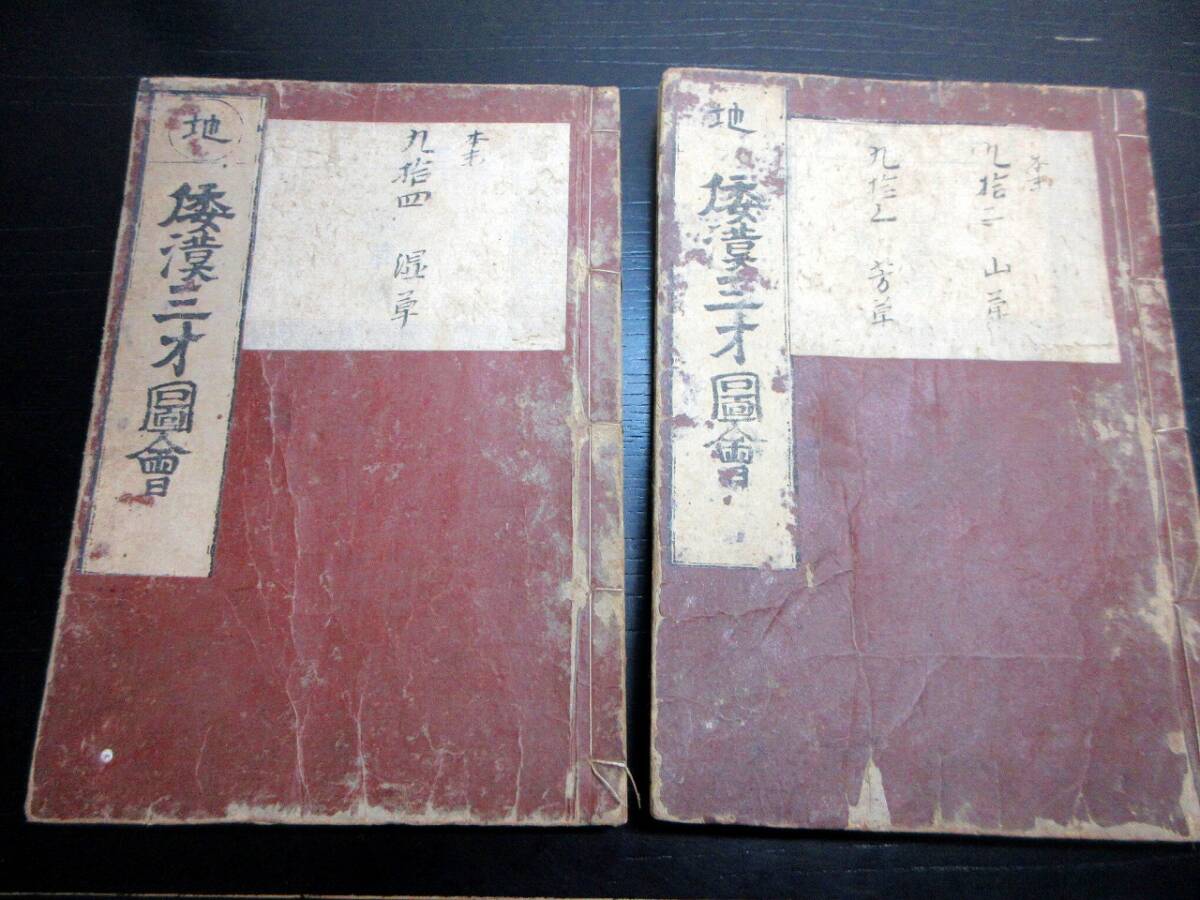 地
倭漢三才圖會
本末
九拾四 濕草
地
倭漢三才圖會
本末
九拾二 山草
九拾三 芳草